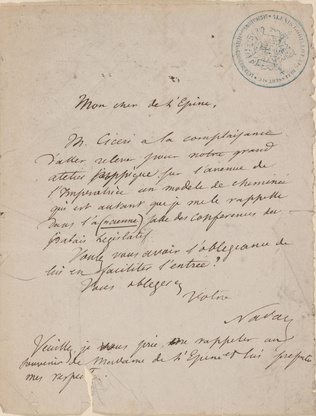 Mon cher de l'Epine,
M. Ciceri a la complaisance
d'aller relever pour notre grand
atelier sur l'avenue de
l'Impératrice un modele de cheminée
qui est autant que je me le rappelle
dans l'ancienne salle des Conferences du
Palais Législatif
Voulez vous avoir l'obligeance de
lui en faciliter l'entrée?
Vous obligerez
Votre
Nadar
Veuillez je vous prie me rappeler au
souvenir de Madame de l'Epine et lui
mes respects.